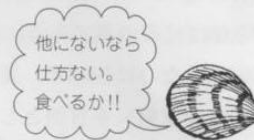 他にないなら
仕方ない。
食べるか!!